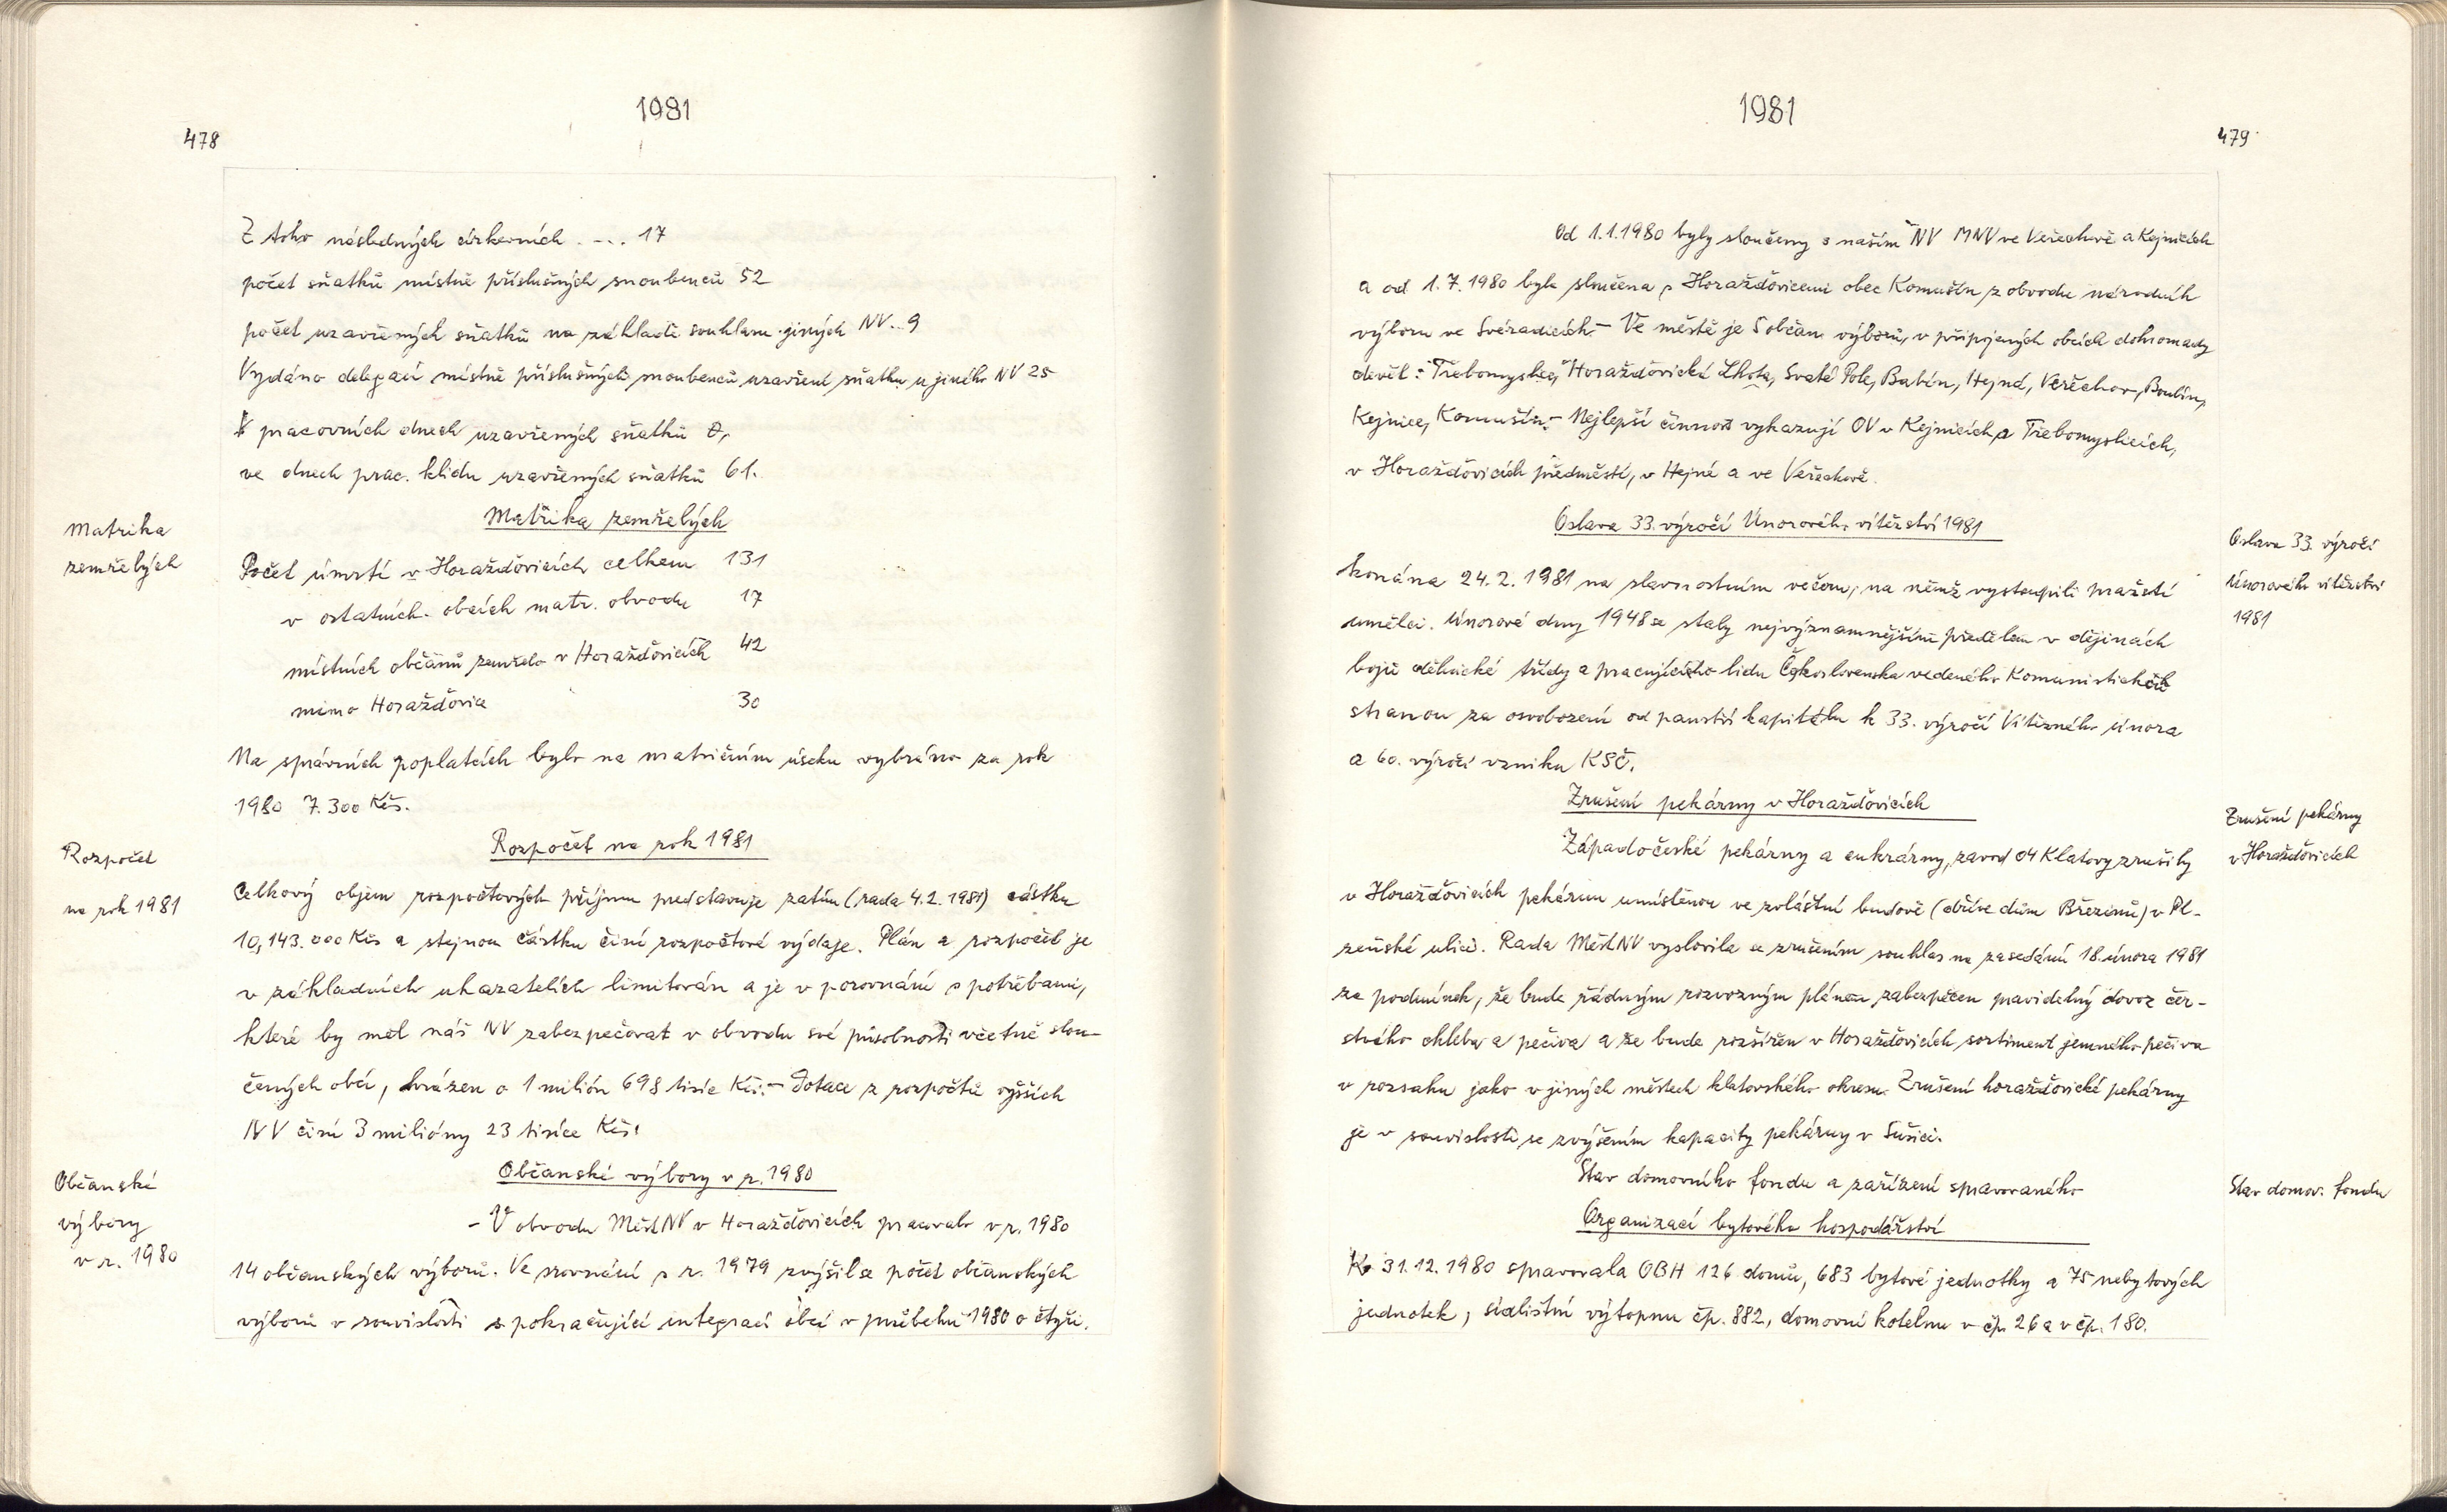 1981
478
Z toho následných církevních . - .. 17
počet sňatků místně příslušných snoubenců 52
počet uzavřených sňatků na základě souhlasu jiných NV.. 9
Vydáno delegací místně příslušných snoubenců uzavření sňatku u jiného NV 25
V pracovních dnech uzavřených sňatků 0,
ve dnech prac. klidu uzavřených sňatků 61.
Matrika
zemřelých
Matrika zemřelých
Počet úmrtí v Horažďovicích celkem 131
v ostatních obcích matr. obvodu 17
místních občanů zemřelo v Horažďovicích 42
mimo Horažďovice 30
Na správních poplatcích bylo na matričním úseku vybráno za rok
1980 7.300 Kčs.
Rozpočet
na rok 1981
Rozpočet na rok 1981
Celkový objem rozpočtových příjmu představuje zatím (rada 4.2. 1981) částku
10,143.000 Kčs a stejnou částku činí rozpočtové výdaje. Plán a rozpočet je
v základních ukazatelích limitován a je v porovnání s potřebami,
které by měl náš NV zabezpečovat v obvodu své působnosti včetně slou-
čených obcí, zkrácen o 1 milión 698 tisíc Kčs. - Dotace z rozpočtů vyšších
NV činí 3 milióny 23 tisíce Kčs.
Občanské
výbory
v r. 1980
Občanské výbory v r. 1980
- V obvodu MěstNV v Horažďovicích pracovalo v r. 1980
14 občanských výborů. Ve srovnání s r. 1979 zvýšil se počet občanských
výborů v souvislosti s pokračující integrací obcí v průběhu 1980 o čtyři.
1981
479
Od 1.1.1980 byly sloučeny s naším NV MNV ve Veřechově a Kejnicích
a od 1.7.1980 byla sloučena s Horažďovicemi obec Komušín z obvodu národních
výboru ve Svéradicích. - Ve městě je 5 občan. výborů, v připojených obcích dohromady
devět: Třebomyslice, Horažďovická Lhota, Svaté Pole, Babín, Hejná, Veřechov, Boubín,
Kejnice, Komušín. - Nejlepší činnost vykazují OV v Kejnicích a Třebomyslicích,
v Horažďovicích předměstí, v Hejné a ve Veřechově.
Oslava 33. výročí Únorového vítězství 1981
Oslava 33. výročí
Únorového vítězství
1981
konána 24.2.1981 na slavnostním večeru, na němž vystoupili pražští
umělci. Únorové dny 1948 se staly nejvýznamnějším předělem v dějinách
bojů dělnické třídy a pracujícího lidu Československa vedeného Komunistickou
stranou za osvobození od panství kapitálu k 33. výročí Vítězného února
a 60. výročí vzniku KSČ.
Zrušení pekárny v Horažďovicích
Zrušení pekárny
v Horažďovicích
Západočeské pekárny a cukrárny, závod 04 Klatovy zrušily
v Horažďovicích pekárnu umístěnou ve zvláštní budově (dříve dům Březinů) v Pl-
zeňské ulici. Rada MěstNV vyslovila se zrušením souhlas na zasedání 18. února 1981
za podmínek, že bude řádným rozvozným plánem zabezpečen pravidelný dovoz čer-
stvého chleba a pečiva a že bude rozšířen v Horažďovicích sortiment jemného pečiva
v rozsahu jako v jiných městech klatovského okresu. Zrušení horažďovické pekárny
je v souvislosti se zvýšením kapacity pekárny v Sušici.
Stav domovního fondu a zařízení spravovaného
Organizací bytového hospodářství
Stav domov. fondu
K 31.12.1980 spravovala OBH 126 domů, 683 bytové jednotky a 75 nebytových
jednotek, sídlištní výtopnu čp. 882, domovní kotelnu v čp. 26 a v čp. 180.